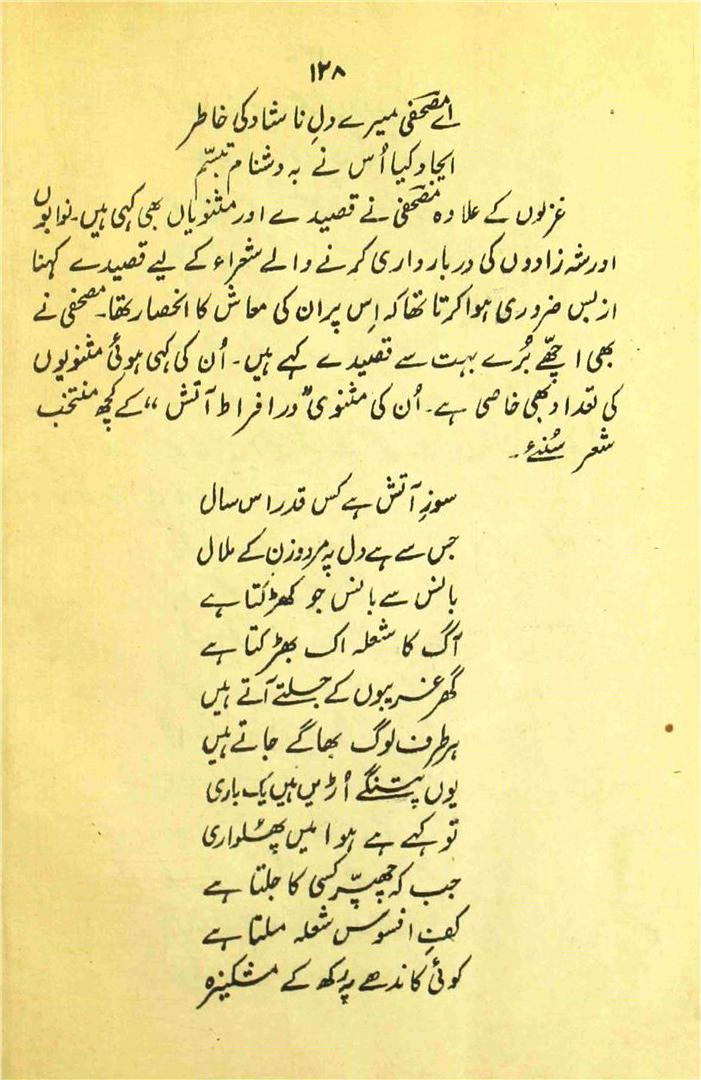 ۱۲۸
اے مصحفیؔ میرے دلِ ناشاد کی خاطر
ایجاد کیا اُس نے بہ دشنام تبسّم
غزلوں کے علاوہ مصحفیؔ نے قصیدے اور مثنویاں بھی کہی ہیں۔ نوابوں
اور شہ زادوں کی دربارداری کرنے والے شعراء کے لیے قصیدے کہنا
از بس ضروری ہوا کرتا تھا کہ اِس پر ان کی معاش کا انحصار تھا۔ مصحفیؔ نے
بھی اچھّے بُرے بہت سے قصیدے کہے ہیں۔ اُن کی کہی ہوئی مثنویوں
کی تعداد بھی خاصی ہے۔ اُن کی مثنوی "در افراط آتش" کے کچھ منتخب
شعر سُنئے۔
سوزِ آتش ہے کس قدر اس سال
جس سے ہے دل پہ مرد و زن کے ملال
بانس سے بانس جو کھڑکتا ہے
آگ کا شعلہ اک بھڑکتا ہے
گھر غریبوں کے جلتے آتے ہیں
ہر طرف لوگ بھاگے جاتے ہیں
یوں پتنگے اُڑیں ہیں یک باری
تو کہے ہے ہوا میں پھلواری
جب کہ چھپّر کسی کا جلتا ہے
کفِ افسوس شعلہ ملتا ہے
کوئی کاندھے پہ رکھ کے مشکیزہ